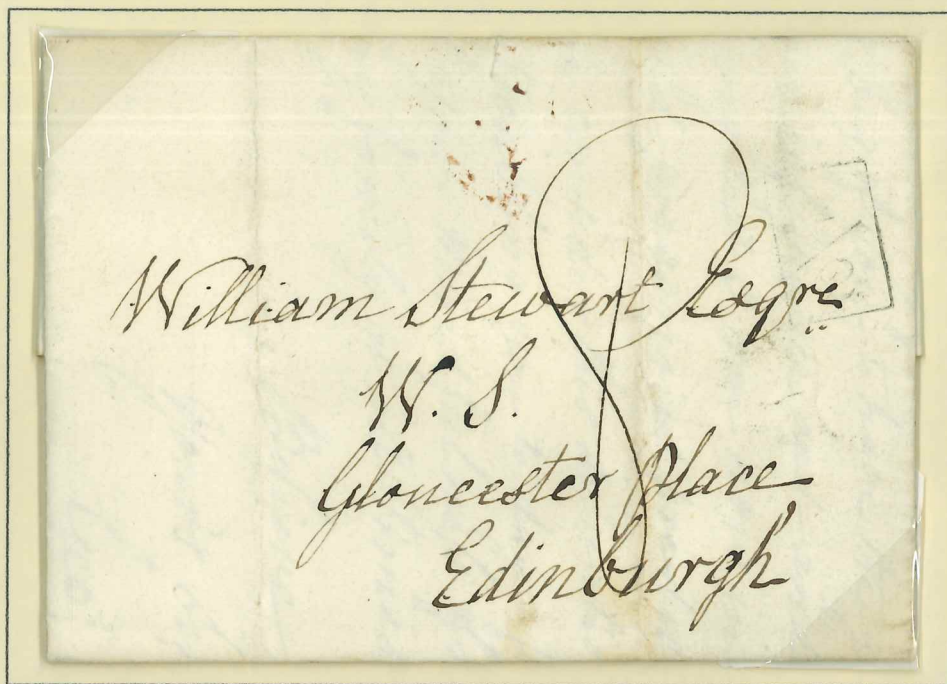 William Stewart Esqre
W. S.
Gloucester Place
Edinburgh
8